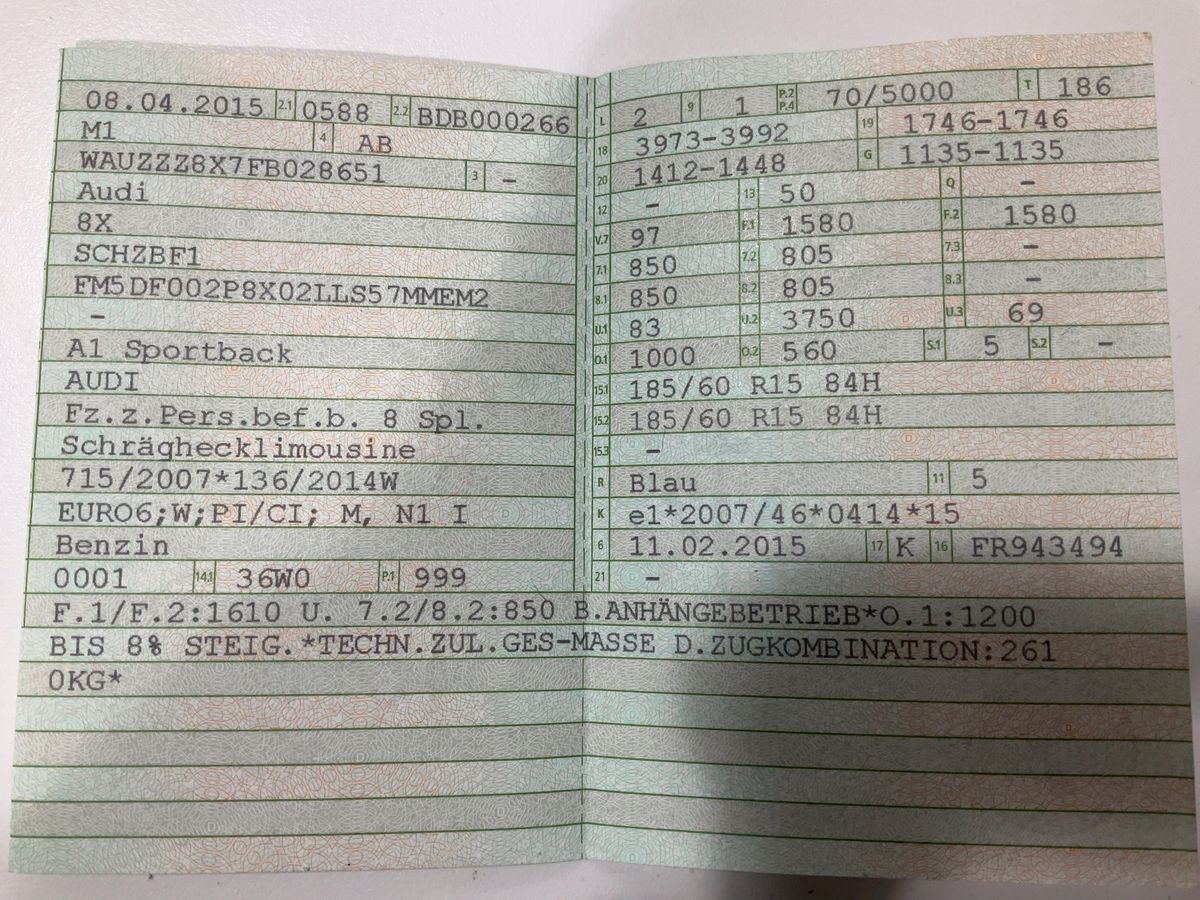 08.04.2015 2.1 0588 2.2 BDB000266
M1 4 AB
WAUZZZ8X7FB028651 3 –
Audi
8X
SCHZBF1
FM5DF002P8X02LLS57MMEM2
–
A1 Sportback
AUDI
Fz.z.Pers.bef.b. 8 Spl.
Schräghecklimousine
715/2007*136/2014W
EURO6;W;PI/CI; M, N1 I
Benzin
0001 14.1 36W0 P.1 999
L 2 9 1 P.2 P.4 70/5000 T 186
18 3973-3992 19 1746-1746
20 1412-1448 G 1135-1135
12 – 13 50 Q –
V.7 97 F.1 1580 F.2 1580
7.1 850 7.2 805 7.3 –
8.1 850 8.2 805 8.3 –
U.1 83 U.2 3750 U.3 69
O.1 1000 O.2 560 S.1 5 S.2 –
15.1 185/60 R15 84H
15.2 185/60 R15 84H
15.3 –
R Blau 11 5
K e1*2007/46*0414*15
6 11.02.2015 17 K 16 FR943494
21 –
F.1/F.2:1610 U. 7.2/8.2:850 B.ANHÄNGEBETRIEB*O.1:1200
BIS 8% STEIG.*TECHN.ZUL.GES-MASSE D.ZUGKOMBINATION:261
0KG*